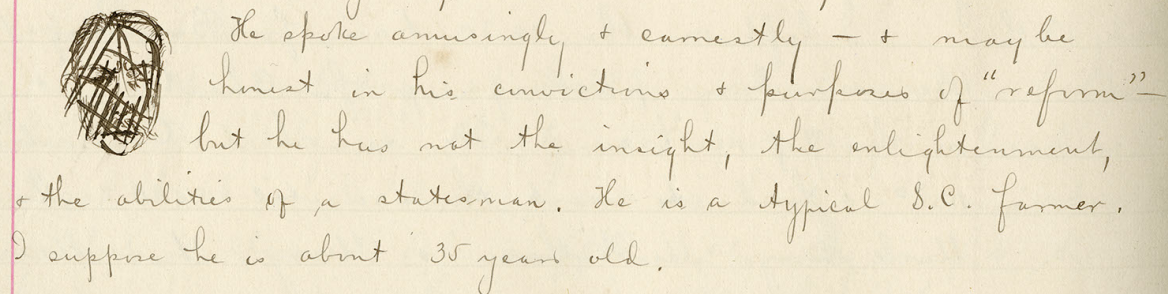 He spoke amusingly & earnestly — & may be
honest in his convictions & purposes of "reform" —
but he has not the insight, the enlightenment,
& the abilities of a statesman. He is a typical S.C. farmer.
I suppose he is about 35 years old.